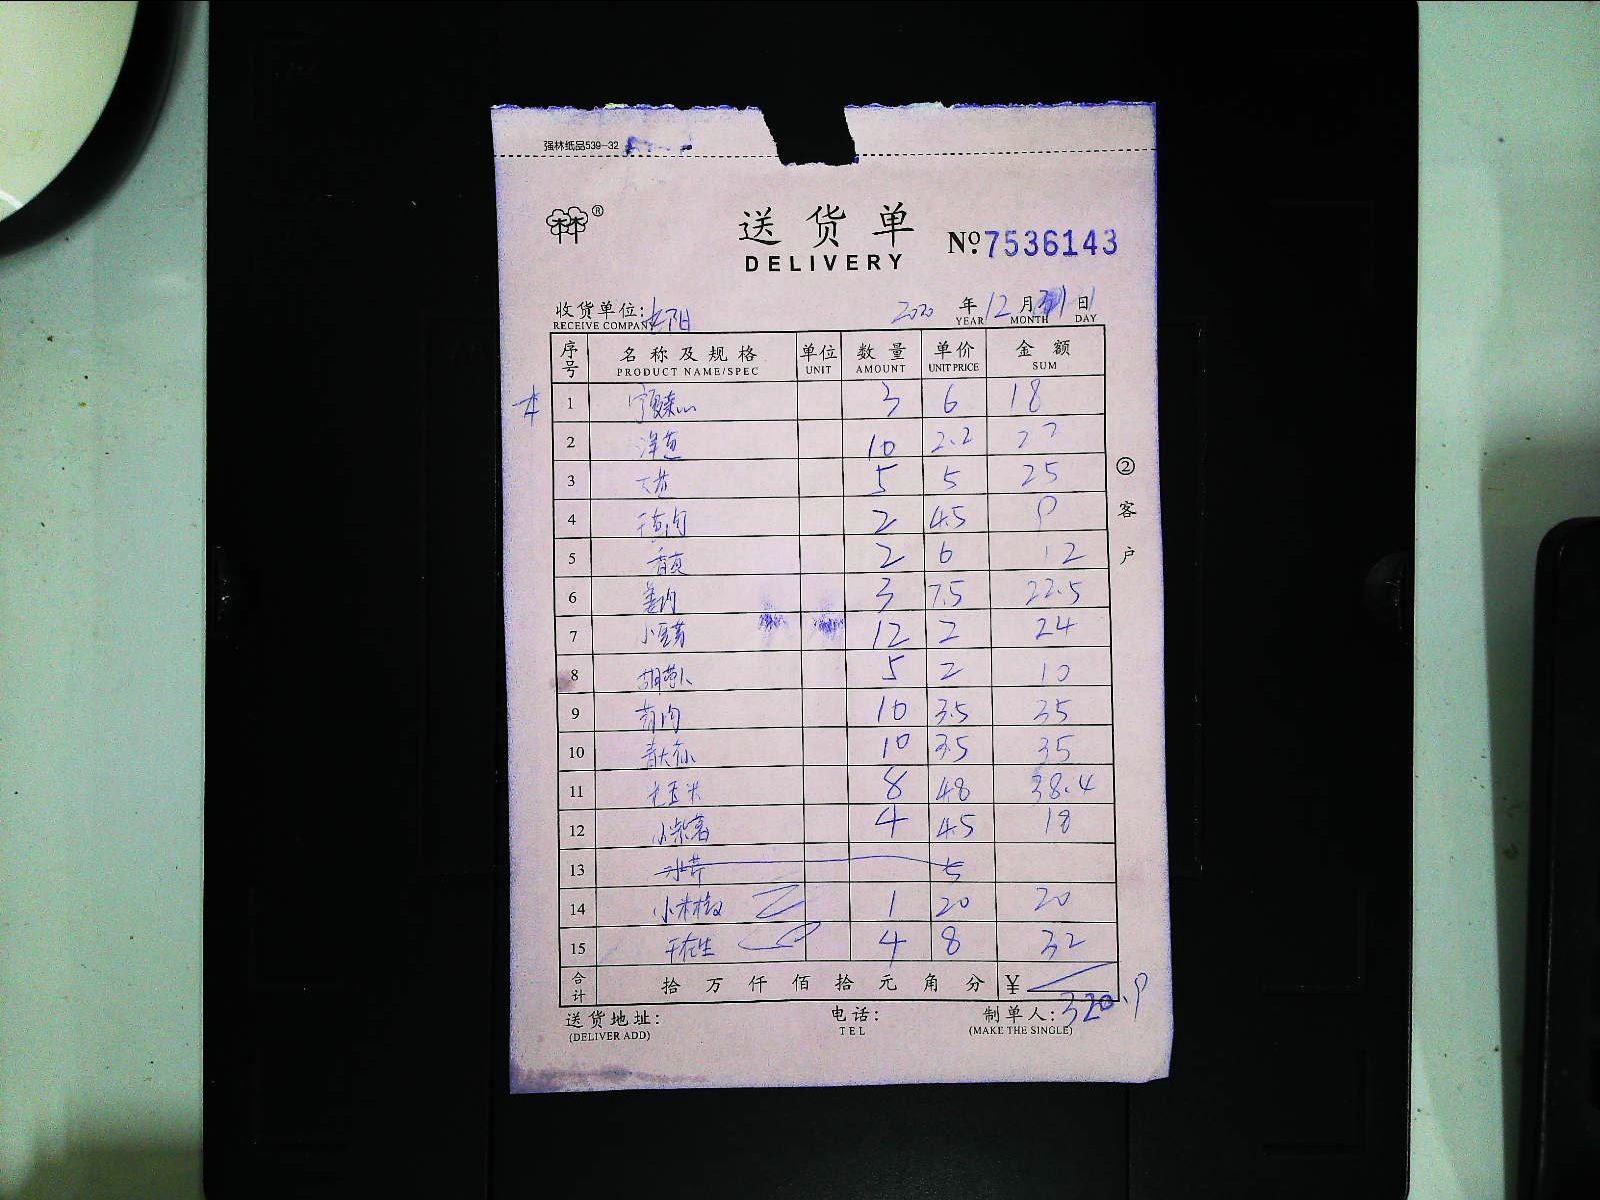 强林纸品539-32
®
送货单
DELIVERY
№7536143
收货单位: 2020年12月 日
RECEIVE COMPANY YEAR MONTH DAY
序号 名称及规格 单位 数量 单价 金额
PRODUCT NAME/SPEC UNIT AMOUNT UNIT PRICE SUM
1 3 6 18
2 洋葱 10 2.2 22
3 5 5 25
4 2 4.5 9
5 2 6 12
6 姜肉 3 7.5 22.5
7 12 2 24
8 5 2 10
9 10 3.5 35
10 10 3.5 35
11 玉米 8 4.8 38.4
12 小紫薯 4 4.5 18
13 水芹 5
14 小米椒 1 20 20
15 4 8 32
合计 拾万仟佰拾元角分 ¥ 320.9
送货地址: 电话: 制单人:
(DELIVER ADD) TEL (MAKE THE SINGLE)
②客户